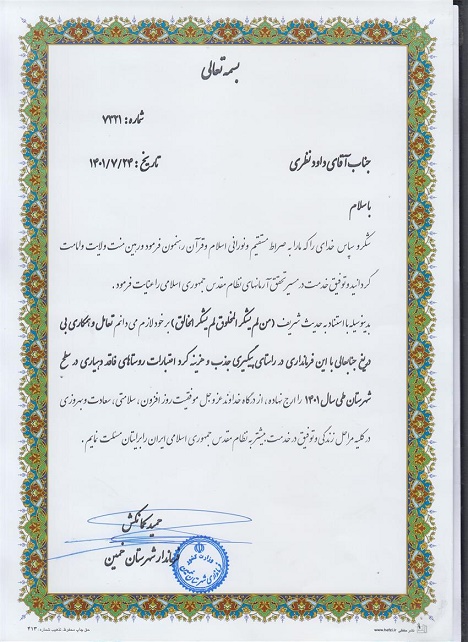 بسمه تعالی
شماره: ۷۳۲۱
جناب آقای داود نظری
تاریخ: ۱۴۰۱/۷/۲۴
با سلام
شکر و سپاس خدای را که ما را به صراط مستقیم و نورانی اسلام و قرآن رهنمون فرمود و رهین منت ولایت و امامت
گردانید و توفیق خدمت در مسیر تحقق آرمانهای نظام مقدس جمهوری اسلامی را عنایت فرمود.
بدینوسیله با استناد به حدیث شریف (من لم یشکر المخلوق لم یشکر الخالق) بر خود لازم می دانم تعامل و همکاری بی
دریغ جنابعالی با این فرمانداری در راستای پیگیری جذب و هزینه کرد اعتبارات روستاهای فاقد دهیاری در سطح
شهرستان طی سال ۱۴۰۱ را ارج نهاده، از درگاه خداوند عزوجل موفقیت روز افزون، سلامتی، سعادت و بهروزی
در کلیه مراحل زندگی و توفیق در خدمت بیشتر به نظام مقدس جمهوری اسلامی ایران را برایتان مسئلت نمایم.
حمید کمانکش
فرماندار شهرستان خمین
وزارت کشور
www.hafez.ir
حق چاپ محفوظ. تذهیب شماره: ۴۱۳